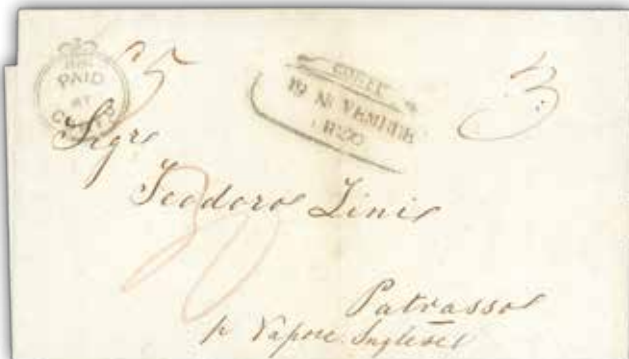 PAID
AT
5
CORFU
19 NOVEMBRE
1850
3
Sigr
Teodoro Zini
30
Patrasso
p Vapore Inglese